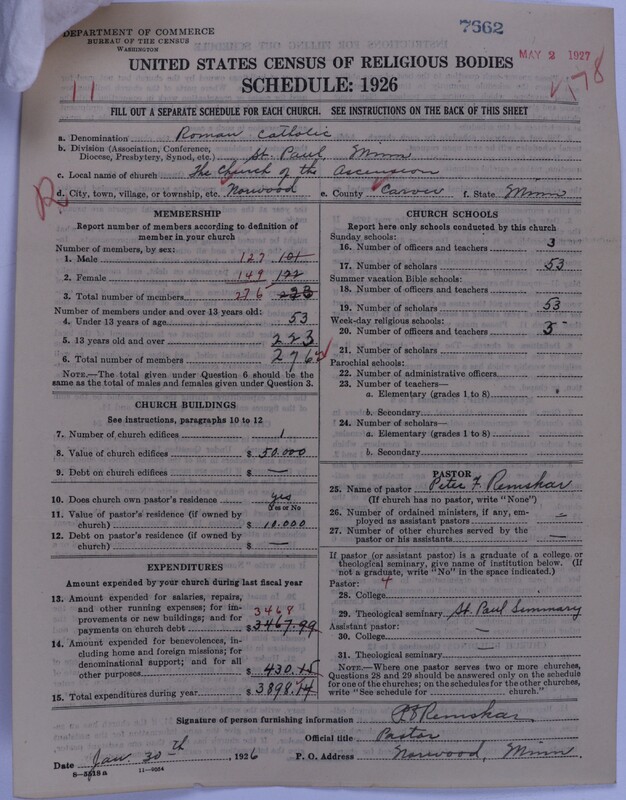 DEPARTMENT OF COMMERCE
BUREAU OF THE CENSUS
WASHINGTON
7662
MAY 2 1927
UNITED STATES CENSUS OF RELIGIOUS BODIES
SCHEDULE: 1926
11
V-78
FILL OUT A SEPARATE SCHEDULE FOR EACH CHURCH. SEE INSTRUCTIONS ON THE BACK OF THIS SHEET
a. Denomination Roman Catholic
b. Division (Association, Conference, Diocese, Presbytery, Synod, etc.) St. Paul, Minn
c. Local name of church The Church of the Ascension
d. City, town, village, or township, etc. Norwood e. County Carver f. State Minn
MEMBERSHIP
Report number of members according to definition of
member in your church
Number of members, by sex:
1. Male 127 101
2. Female 149 122
3. Total number of members 276 223
Number of members under and over 13 years old:
4. Under 13 years of age 53
5. 13 years old and over 223
6. Total number of members 276
NOTE.—The total given under Question 6 should be
same as the total of males and females given under Question 3.
CHURCH BUILDINGS
See instructions, paragraphs 10 to 12
7. Number of church edifices 1
8. Value of church edifices $ 50.000
9. Debt on church edifices $ —
10. Does church own pastor's residence yes
Yes or No
11. Value of pastor's residence (if owned by
church) $ 10.000
12. Debt on pastor's residence (if owned by
church) $ —
EXPENDITURES
Amount expended by your church during last fiscal year
13. Amount expended for salaries, repairs,
and other running expenses; for im-
provements or new buildings; and for 3468
payments on church debt $ 3467.99
14. Amount expended for benevolences, in-
cluding home and foreign missions; for
denominational support; and for all
other purposes $ 430.15
15. Total expenditures during year $ 3898.14
CHURCH SCHOOLS
Report here only schools conducted by this church
Sunday schools:
16. Number of officers and teachers 3
17. Number of scholars 53
Summer vacation Bible schools:
18. Number of officers and teachers
19. Number of scholars 53
Week-day religious schools:
20. Number of officers and teachers 3
21. Number of scholars
Parochial schools:
22. Number of administrative officers
23. Number of teachers—
a. Elementary (grades 1 to 8)
b. Secondary
24. Number of scholars—
a. Elementary (grades 1 to 8)
b. Secondary
PASTOR
25. Name of pastor Peter F. Remskar
(If church has no pastor, write "None")
26. Number of ordained ministers, if any, em-
ployed as assistant pastors —
27. Number of other churches served by the
pastor or his assistants —
If pastor (or assistant pastor) is a graduate of a college or
theological seminary, give name of institution below. (If
not a graduate, write "No" in the space indicated.)
Pastor: 4
28. College
29. Theological seminary St. Paul Seminary
Assistant pastor:
30. College —
31. Theological seminary —
NOTE.—Where one pastor serves two or more churches,
Questions 28 and 29 should be answered only on the schedule
for one of the churches; on the schedules for the other churches,
write "See schedule for church."
Signature of person furnishing information P.F. Remskar
Official title Pastor
Date Jan. 30th, 1926 P. O. Address Norwood, Minn.
8—5518a 11—9084